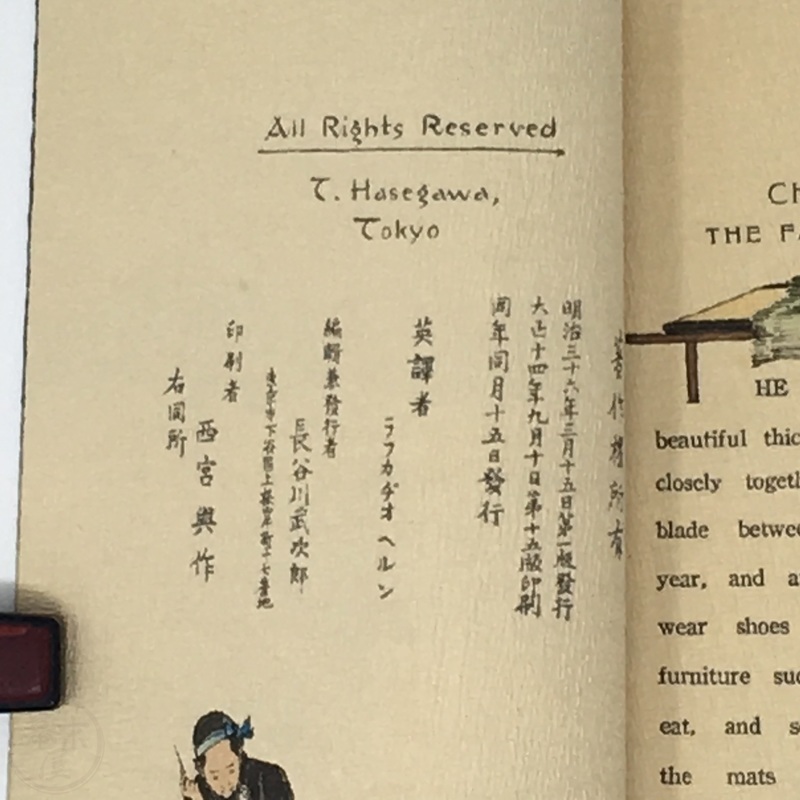 All Rights Reserved
T. Hasegawa,
Tokyo
著作權所有
明治三十六年三月十五日第一版發行
大正十四年九月十日第十五版印刷
同年同月十五日發行
英譯者
ラフカヂオ ヘルン
編輯兼發行者
長谷川武次郎
東京市下谷區上根岸町十七番地
印刷者
西宮與作
右同所
Ch
THE FA
HE
beautiful thic
closely togeth
blade betwee
year, and a
wear shoes
furniture suc
eat, and s
the mats